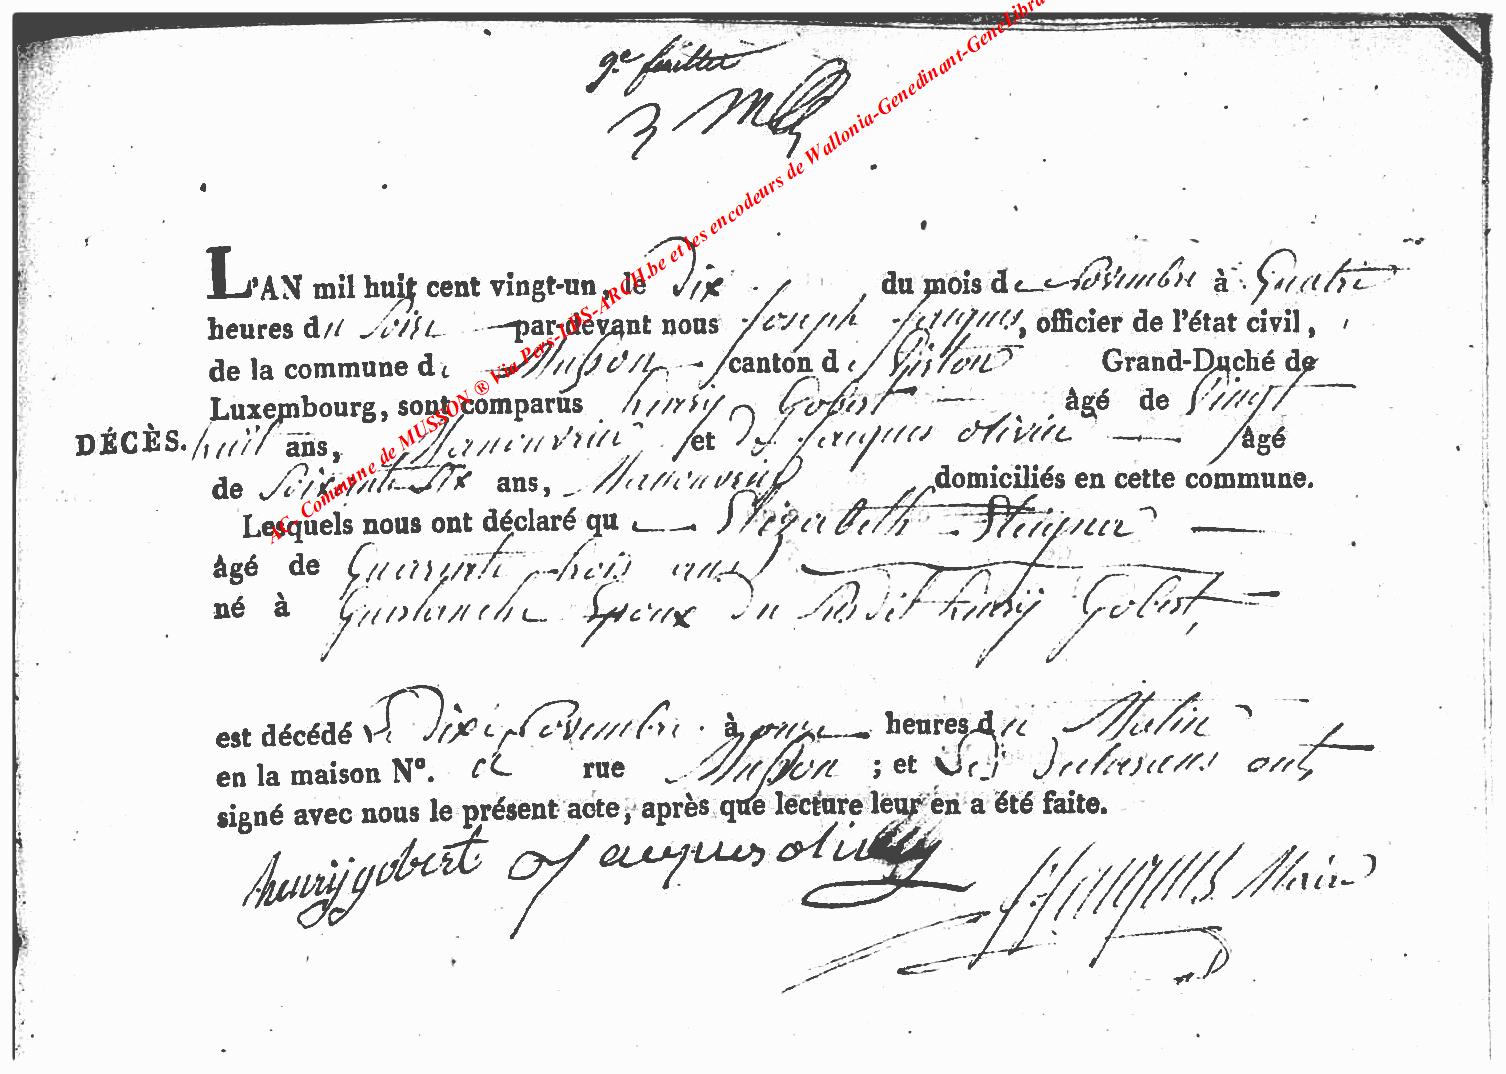 9.e feuillet
AC- Commune de MUSSON ® Via Pers-LDS-ARCH.be et les encodeurs de Wallonia-Genedinant-GeneLibra
L'AN mil huit cent vingt-un, le Dix du mois de Novembre à Quatre
heures du Soire par-devant nous Joseph Jacques, officier de l'état civil,
de la commune de Musson canton de Virton Grand-Duché de
Luxembourg, sont comparus henry Gobert âgé de Vingt
DÉCÈS. huit ans, Manouvrier et De Jacques olivier âgé
de Soixante Six ans, Manouvrier domiciliés en cette commune.
Lesquels nous ont déclaré qu Elizabeth
âgé de Quarente trois ans
né à Epoux du Susdit henry Gobert,
est décédé le Dixe Novembre à onze heures du Matin
en la maison N°. rue Musson ; et Les Declarans ont
signé avec nous le présent acte, après que lecture leur en a été faite.
henry gobert Jacques olivier J Jacques Maire